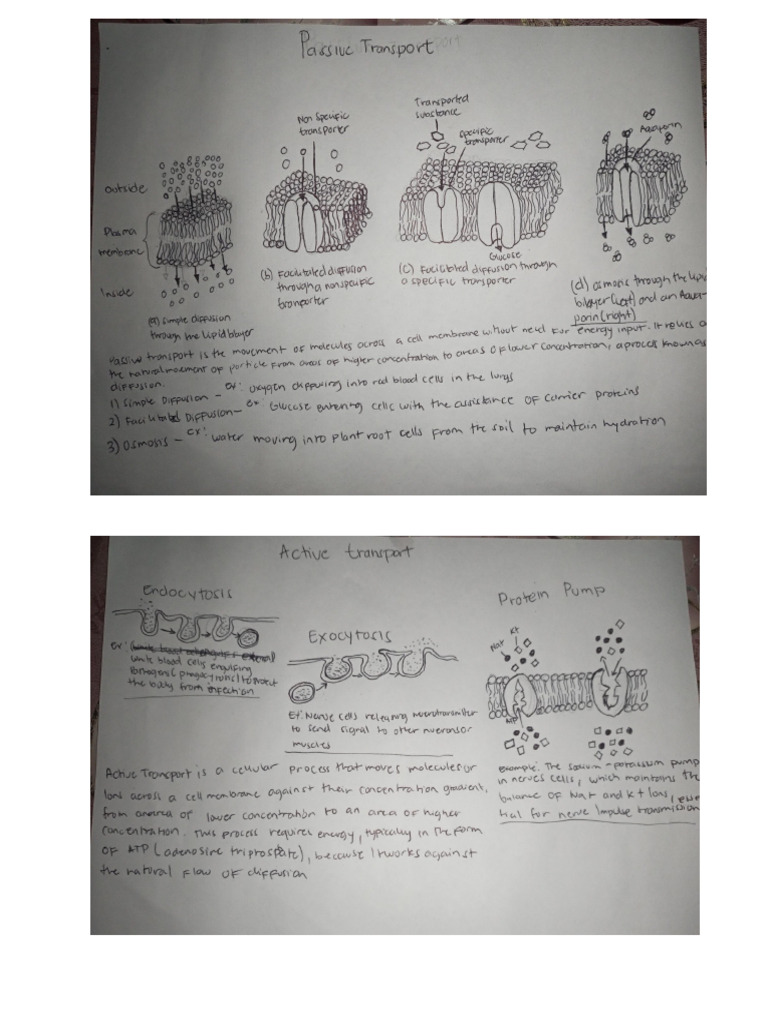 Passive Transport
Non Specific
transporter
Transported
substance
specific
transporter
Aquaporin
outside
Plasma
membrane
Inside
Glucose
(a) simple diffusion
through the lipid bilayer
(b) Facilitated diffusion
through a nonspecific
transporter
(c) Facilitated diffusion through
a specific transporter
(d) osmosis through the lipid
bilayer (left) and an Aqua-
porin (right)
Passive transport is the movement of molecules across a cell membrane without need for energy input. It relies o
the natural movement of particle from areas of higher concentration to areas of lower concentration, a process known as
diffusion.
1) Simple Diffusion - ex: oxygen diffusing into red blood cells in the lungs
2) Facilitated Diffusion- ex: Glucose entering cells with the assistance of carrier proteins
3) Osmosis - ex: water moving into plant root cells from the soil to maintain hydration
Active transport
Endocytosis
Ex:
white blood cells engulfing
Pathogens (phagocytosis) to protect
the body from infection
Exocytosis
Ex: Nerve cells releasing neurotransmitter
to send signal to other neurons or
muscles
Protein Pump
Na+
K+
ATP
example: The sodium-potassium pump
in nerves cells, which maintains the
balance of Na+ and K+ Ions, essen
tial for nerve Impulse transmission
Active Transport is a cellular process that moves molecules or
Ions across a cell membrane against their concentration gradient,
from an area of lower concentration to an area of higher
concentration. This process requires energy, typically in the form
of ATP (adenosine triphosphate), because it works against
the natural flow of diffusion